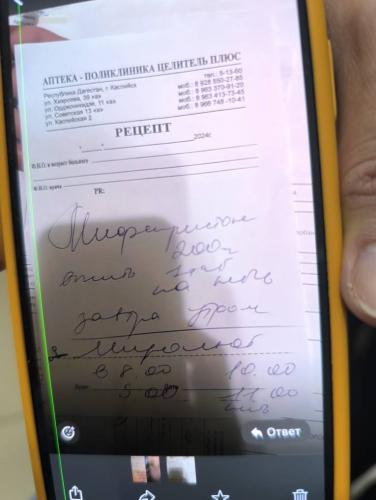 АПТЕКА - ПОЛИКЛИНИКА ЦЕЛИТЕЛЬ ПЛЮС
Республика Дагестан, г. Каспийск
ул. Хизроева, 39 «а»
ул. Орджоникидзе, 11 «а»
ул. Советская 13 «а»
ул. Каспийская 2
тел.: 5-13-60
моб.: 8 928 550-27-85
моб.: 8 963 370-91-20
моб.: 8 963 413-73-45
моб.: 8 966 748-10-41
РЕЦЕПТ
2024г.
Ф.И.О. и возраст больного
Ф.И.О. врача
PR:
Мифепристон
200
1 таб
на ночь
завтра утром
Миролют
в 8.00 10.00
9.00 11.00
Дата
Ответ